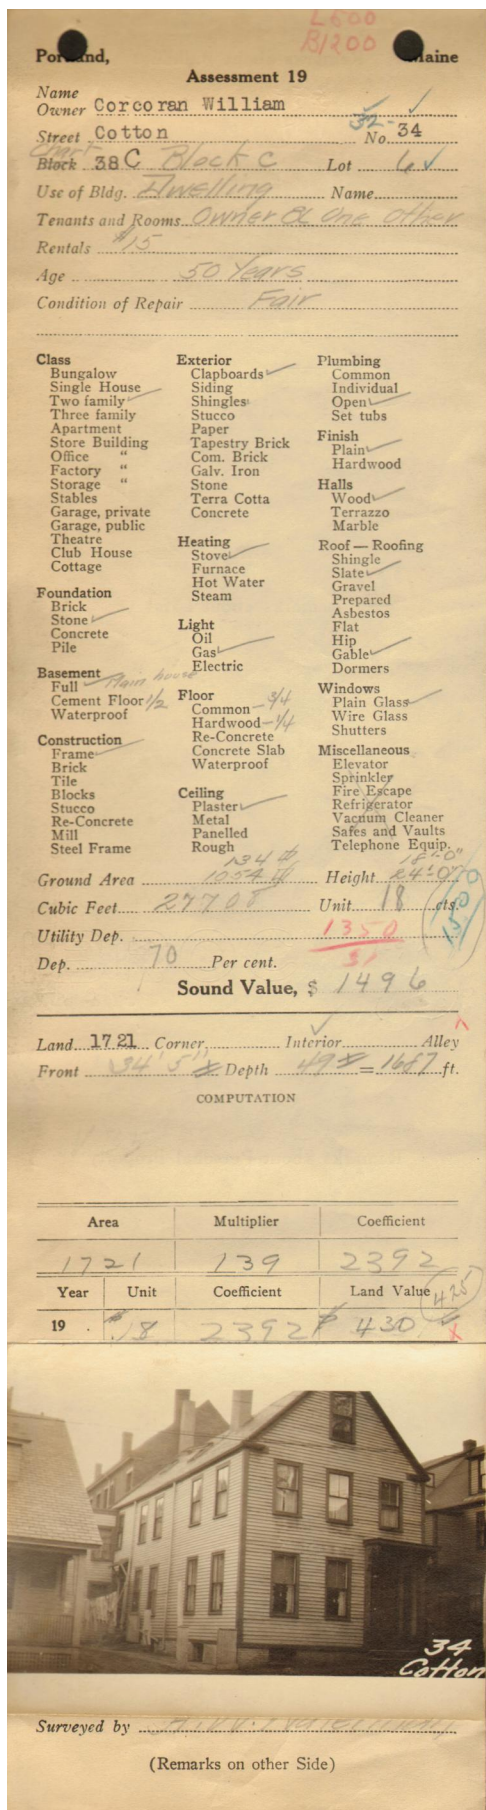 L600
B1200
Portland, Maine
Assessment 19
Name
Owner Corcoran William
Street Cotton 32- No. 34
Chart
Block 38C Block C Lot 6
Use of Bldg. Dwelling Name
Tenants and Rooms Owner & One Other
Rentals $15
Age 50 Years
Condition of Repair Fair
Class
Bungalow
Single House
Two family
Three family
Apartment
Store Building
Office "
Factory "
Storage "
Stables
Garage, private
Garage, public
Theatre
Club House
Cottage
Foundation
Brick
Stone
Concrete
Pile
Basement
Full Main house
Cement Floor 1/2
Waterproof
Construction
Frame
Brick
Tile
Blocks
Stucco
Re-Concrete
Mill
Steel Frame
Exterior
Clapboards
Siding
Shingles
Stucco
Paper
Tapestry Brick
Com. Brick
Galv. Iron
Stone
Terra Cotta
Concrete
Heating
Stove
Furnace
Hot Water
Steam
Light
Oil
Gas
Electric
Floor
Common - 3/4
Hardwood - 1/4
Re-Concrete
Concrete Slab
Waterproof
Ceiling
Plaster
Metal
Panelled
Rough
Plumbing
Common
Individual
Open
Set tubs
Finish
Plain
Hardwood
Halls
Wood
Terrazzo
Marble
Roof — Roofing
Shingle
Slate
Gravel
Prepared
Asbestos
Flat
Hip
Gable
Dormers
Windows
Plain Glass
Wire Glass
Shutters
Miscellaneous
Elevator
Sprinkler
Fire Escape
Refrigerator
Vacuum Cleaner
Safes and Vaults
Telephone Equip.
134 18'-0"
Ground Area 1054 Height 24'-0"
Cubic Feet 27708 Unit 18 cts.
Utility Dep. 1350
Dep. 70 Per cent.
Sound Value, $ 1496
Land 1721 Corner Interior Alley
Front 34' 5" Depth 49 = 1687 ft.
COMPUTATION
Area Multiplier Coefficient
1721 139 2392
Year Unit Coefficient Land Value 425
19 . $.18 2392 $ 430
34
Cotton
Surveyed by
(Remarks on other Side)